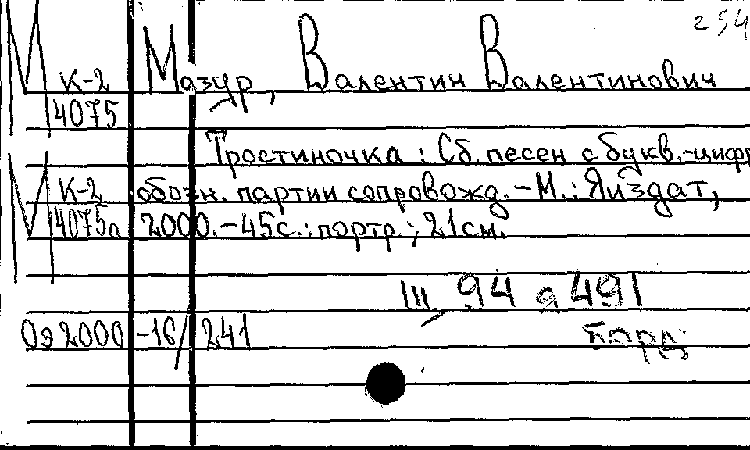 254
М К-2 Мазур, Валентин Валентинович
4075
Тростиночка : Сб. песен с букв.-цифр
М К-2 обозн. партии сопровожд. - М.: Яиздат,
4075а 2000. - 45с.: портр.; 21см.
94 491
Оэ2000 -16/241